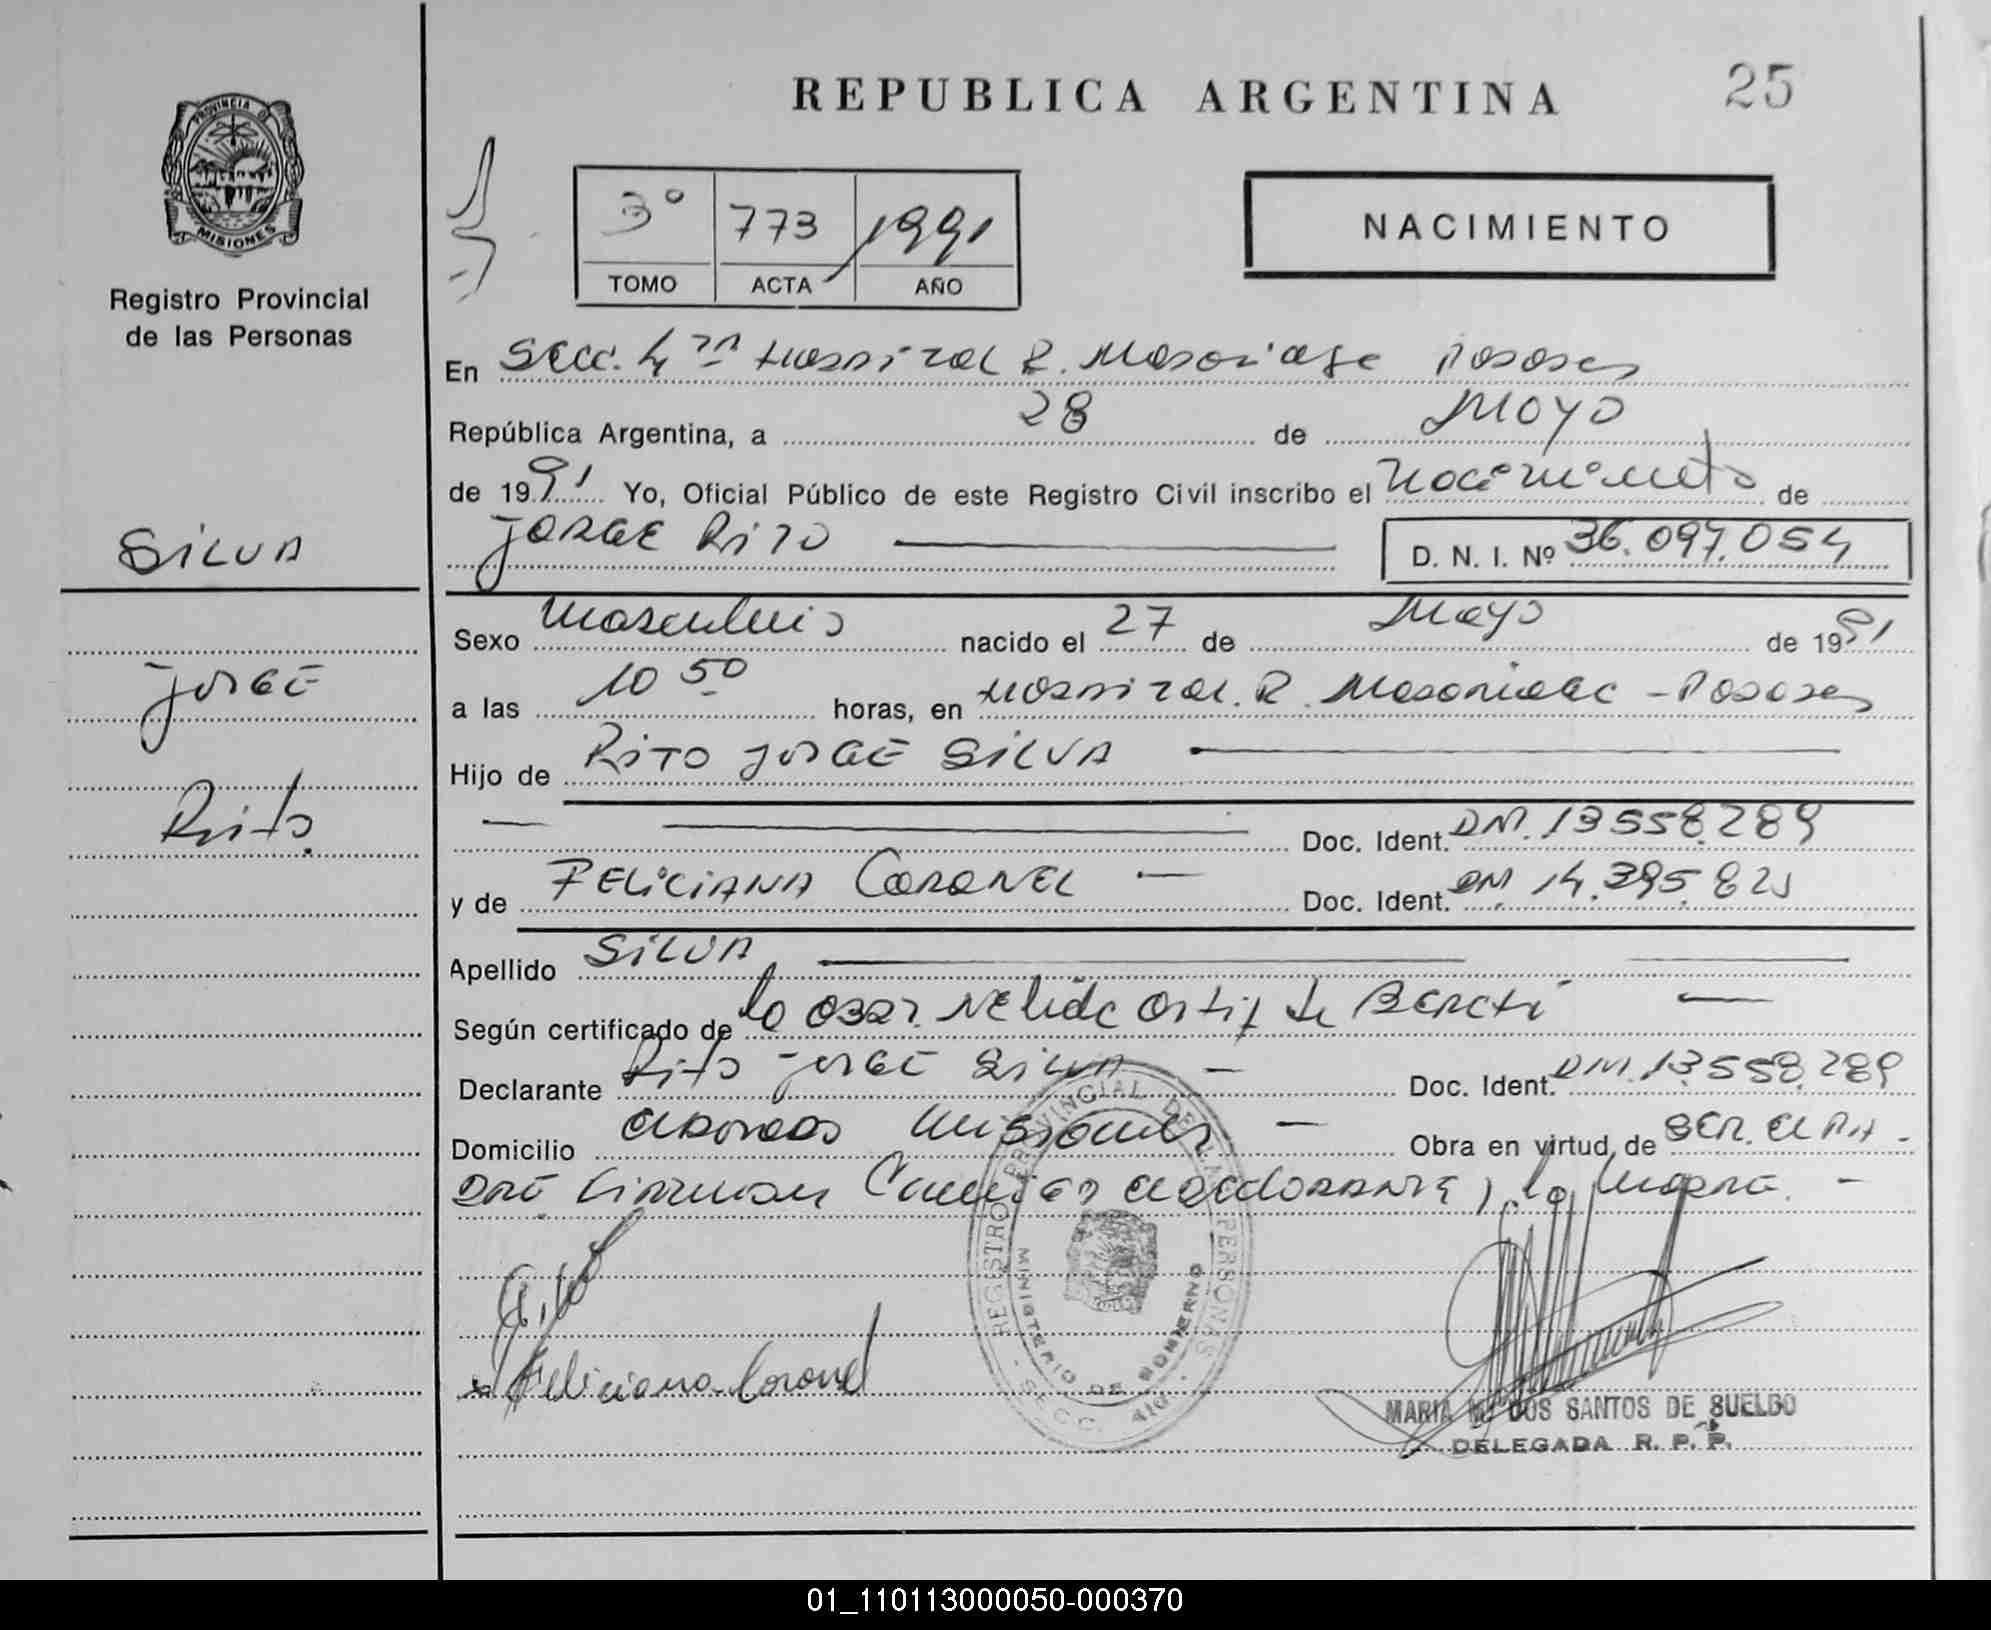 REPUBLICA ARGENTINA
25
PROVINCIA DE
MISIONES
Registro Provincial
de las Personas
3º 773 1991
TOMO ACTA AÑO
NACIMIENTO
En Secc. 4ta Hospital R. Madariaga Posadas
República Argentina, a 28 de Mayo
de 1991 Yo, Oficial Público de este Registro Civil inscribo el Nacimiento de
JORGE RITO D. N. I. Nº 36.097.054
SILVA
Sexo Masculino nacido el 27 de Mayo de 1991
JORGE
a las 10 50 horas, en Hospital R. Madariaga - Posadas
Hijo de RITO JORGE SILVA
Rito.
Doc. Ident. DNI. 13558.289
y de FELICIANA CORONEL Doc. Ident. DNI. 14.395.821
Apellido SILVA
Según certificado de la Obst. Nelida Ortiz de
Declarante Rito JORGE SILVA Doc. Ident. DNI. 13.558.289
Domicilio Misiones Obra en virtud de SER. EL PA.
DRE. Firman la Madre.
Feliciana Coronel
REGISTRO PROVINCIAL DE LAS PERSONAS
MINISTERIO DE GOBIERNO
SECC. 4ta.
MARIA M. DOS SANTOS DE SUELDO
DELEGADA R. P. P.
01_110113000050-000370